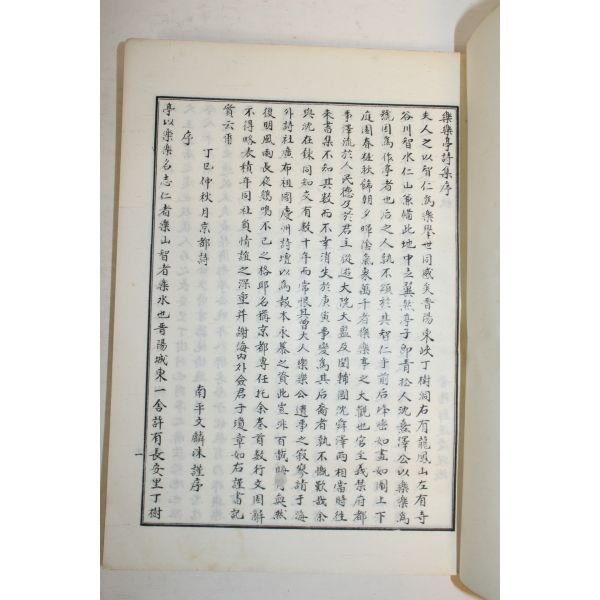 樂樂亭詩集序
夫人之以智仁爲樂擧世同感矣晋陽東峽丁樹洞右有龍鳳山左有寺
谷川智水仁山兼備此地中立翼然亭子卽靑松人沈 澤公以樂樂爲
號因爲作亭者也后之人孰不頌於其智仁乎前后峰巒如畫如圖上下
庭園春 秋餙朝夕暉陰氣象萬千者樂樂亭之大觀也官主義禁府都
事澤流於人民德及於君主從遊大院大監及閔輔國沈舜澤兩相當時往
來書集不知其數而不幸消失於庚寅事變爲其后裔者孰不慨歎哉余
與沈在 同知交有數十年而常恨其曾大人樂樂公遺事之寂寥請于海
外詩社廣布祖國慶州詩壇以爲報本永慕之資此豈非百載晦 與然
後明風雨長夜鷄鳴不已之格耶名稱京都專任托余 首數行文固辭
不得略表積年同社負情誼之深重幷謝海內外僉君子瓊章如右謹書記
實云爾
丁巳仲秋月京都詩 南平文麟洙謹序
序
亭以樂樂名志仁者樂山智者樂水也晋陽城東一舍許有長安里丁樹
一